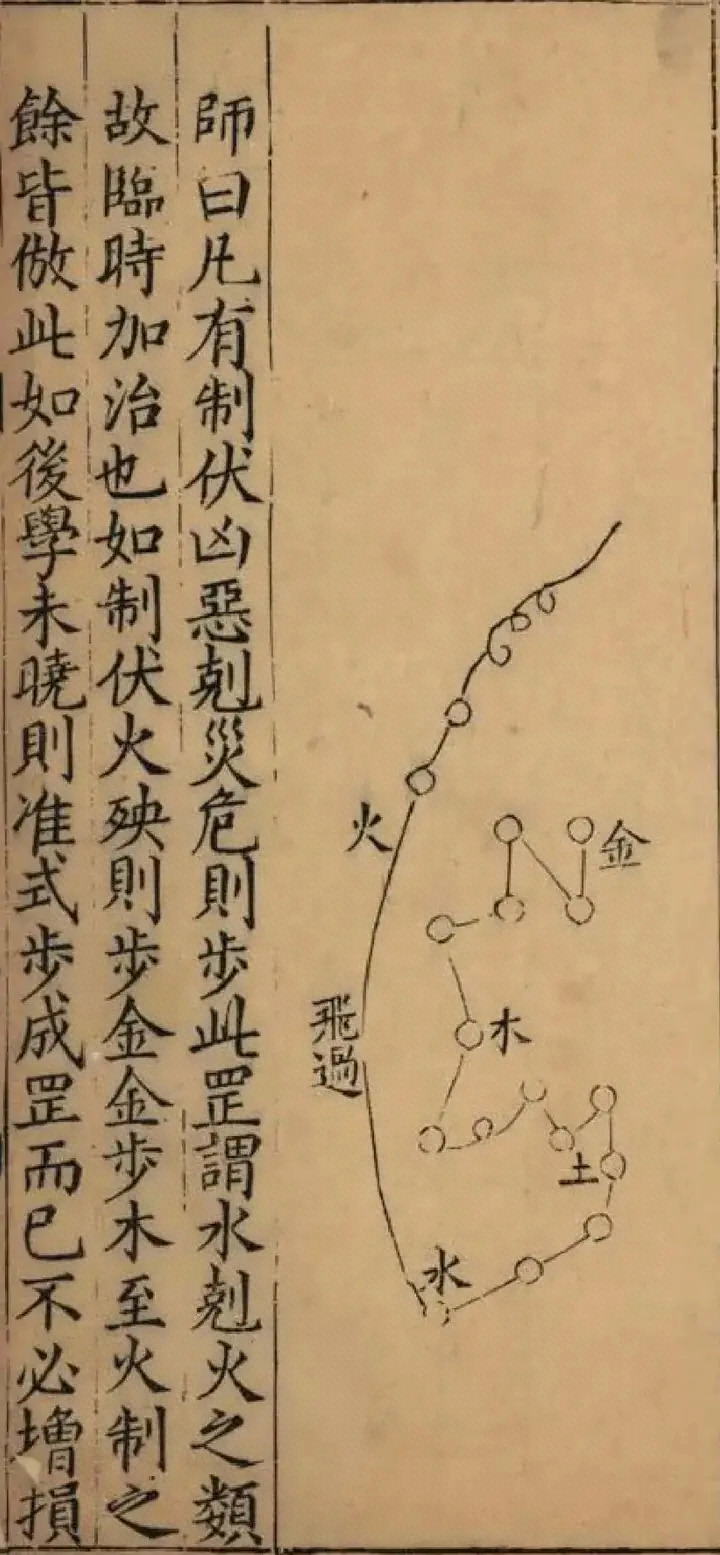 金
木
土
水
火
飛過
師曰凡有制伏凶惡剋災危則步此罡謂水剋火之類
故臨時加治也如制伏火殃則步金金步木至火制之
餘皆倣此如後學未曉則准式步成罡而已不必增損